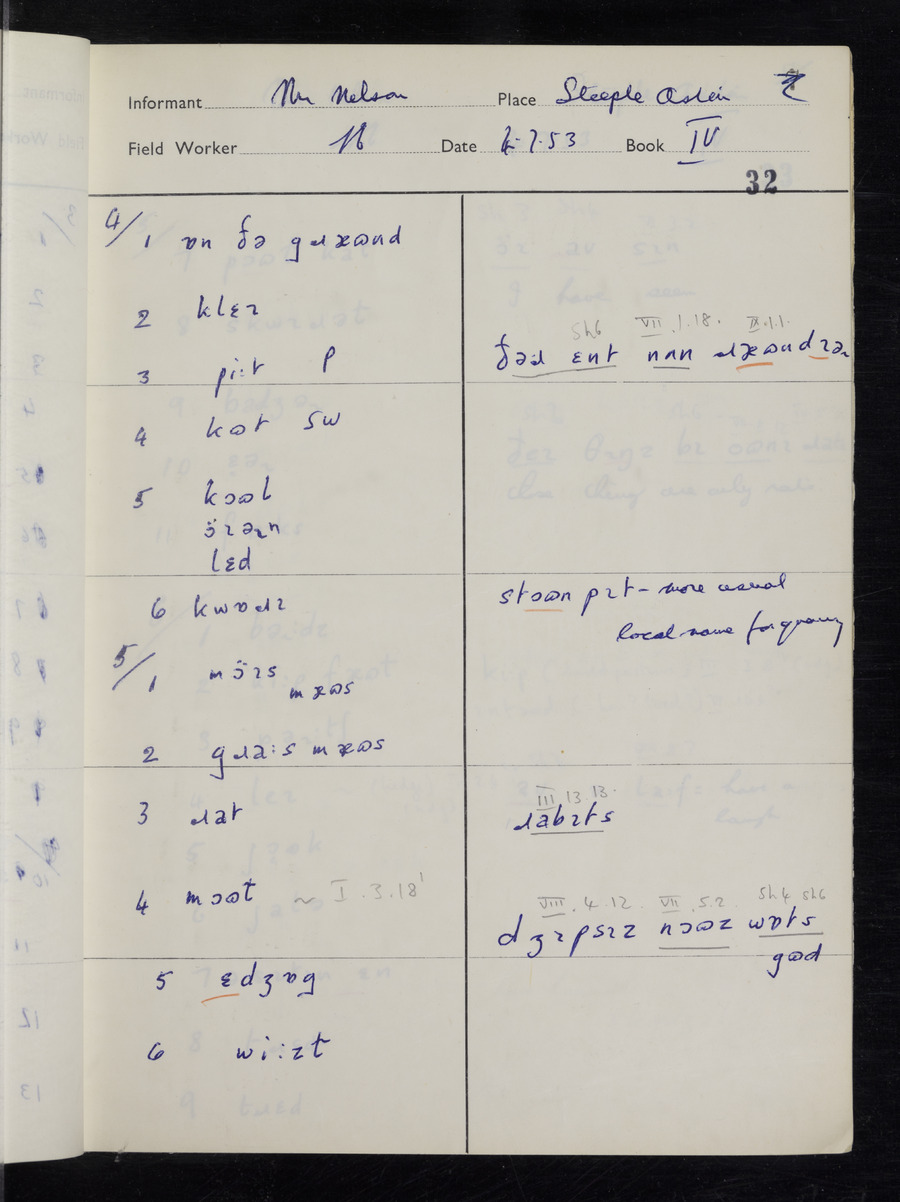 Informant Mr Nelson Place Steeple Aston
Field Worker Date 6.7.53 Book IV
32
4/1 ɒn ðə gɹæʊnd
2 klɛɪ
3 pi:t p
4 kʊt sw
5 kɔʊl
ɔ̈ɪəɪn
lɛd
6 kwɒɹɪ
5/1 mɔ̈ɪs
mæʊs
2 gɹa:s mæʊs
3 ɹat
4 mɔʊt ~ I.3.18
5 ɛdʒɒg
6 wi:zt
Sh6 VII.1.18. IX.1.1.
ðəɹ ɛnt nʌn ɹæʊndɪəɪ
stɔʊn pɪt - more usual
local name for quarry
III 13 13.
ɹabɪts
VIII.4.12. VII.5.2. Sh4 Sh6
dʒɪpsɪz nɔʊz wɒts
gʊd